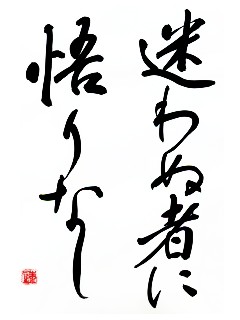 迷わぬ者に
悟りなし